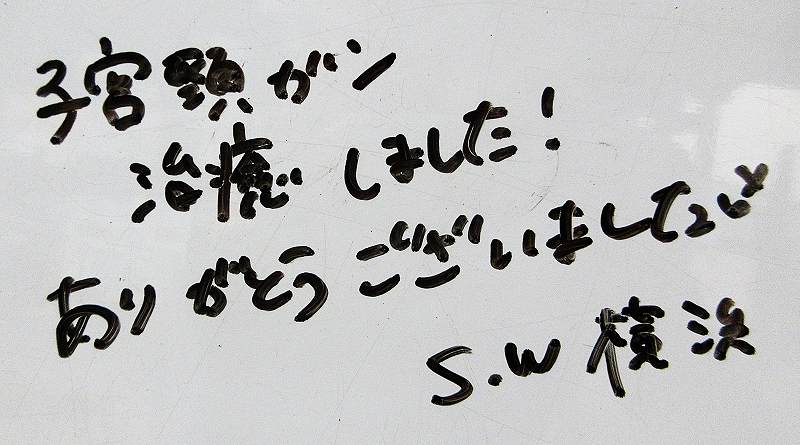 子宮頸がん
治癒しました!
ありがとうございました
S.W 横浜